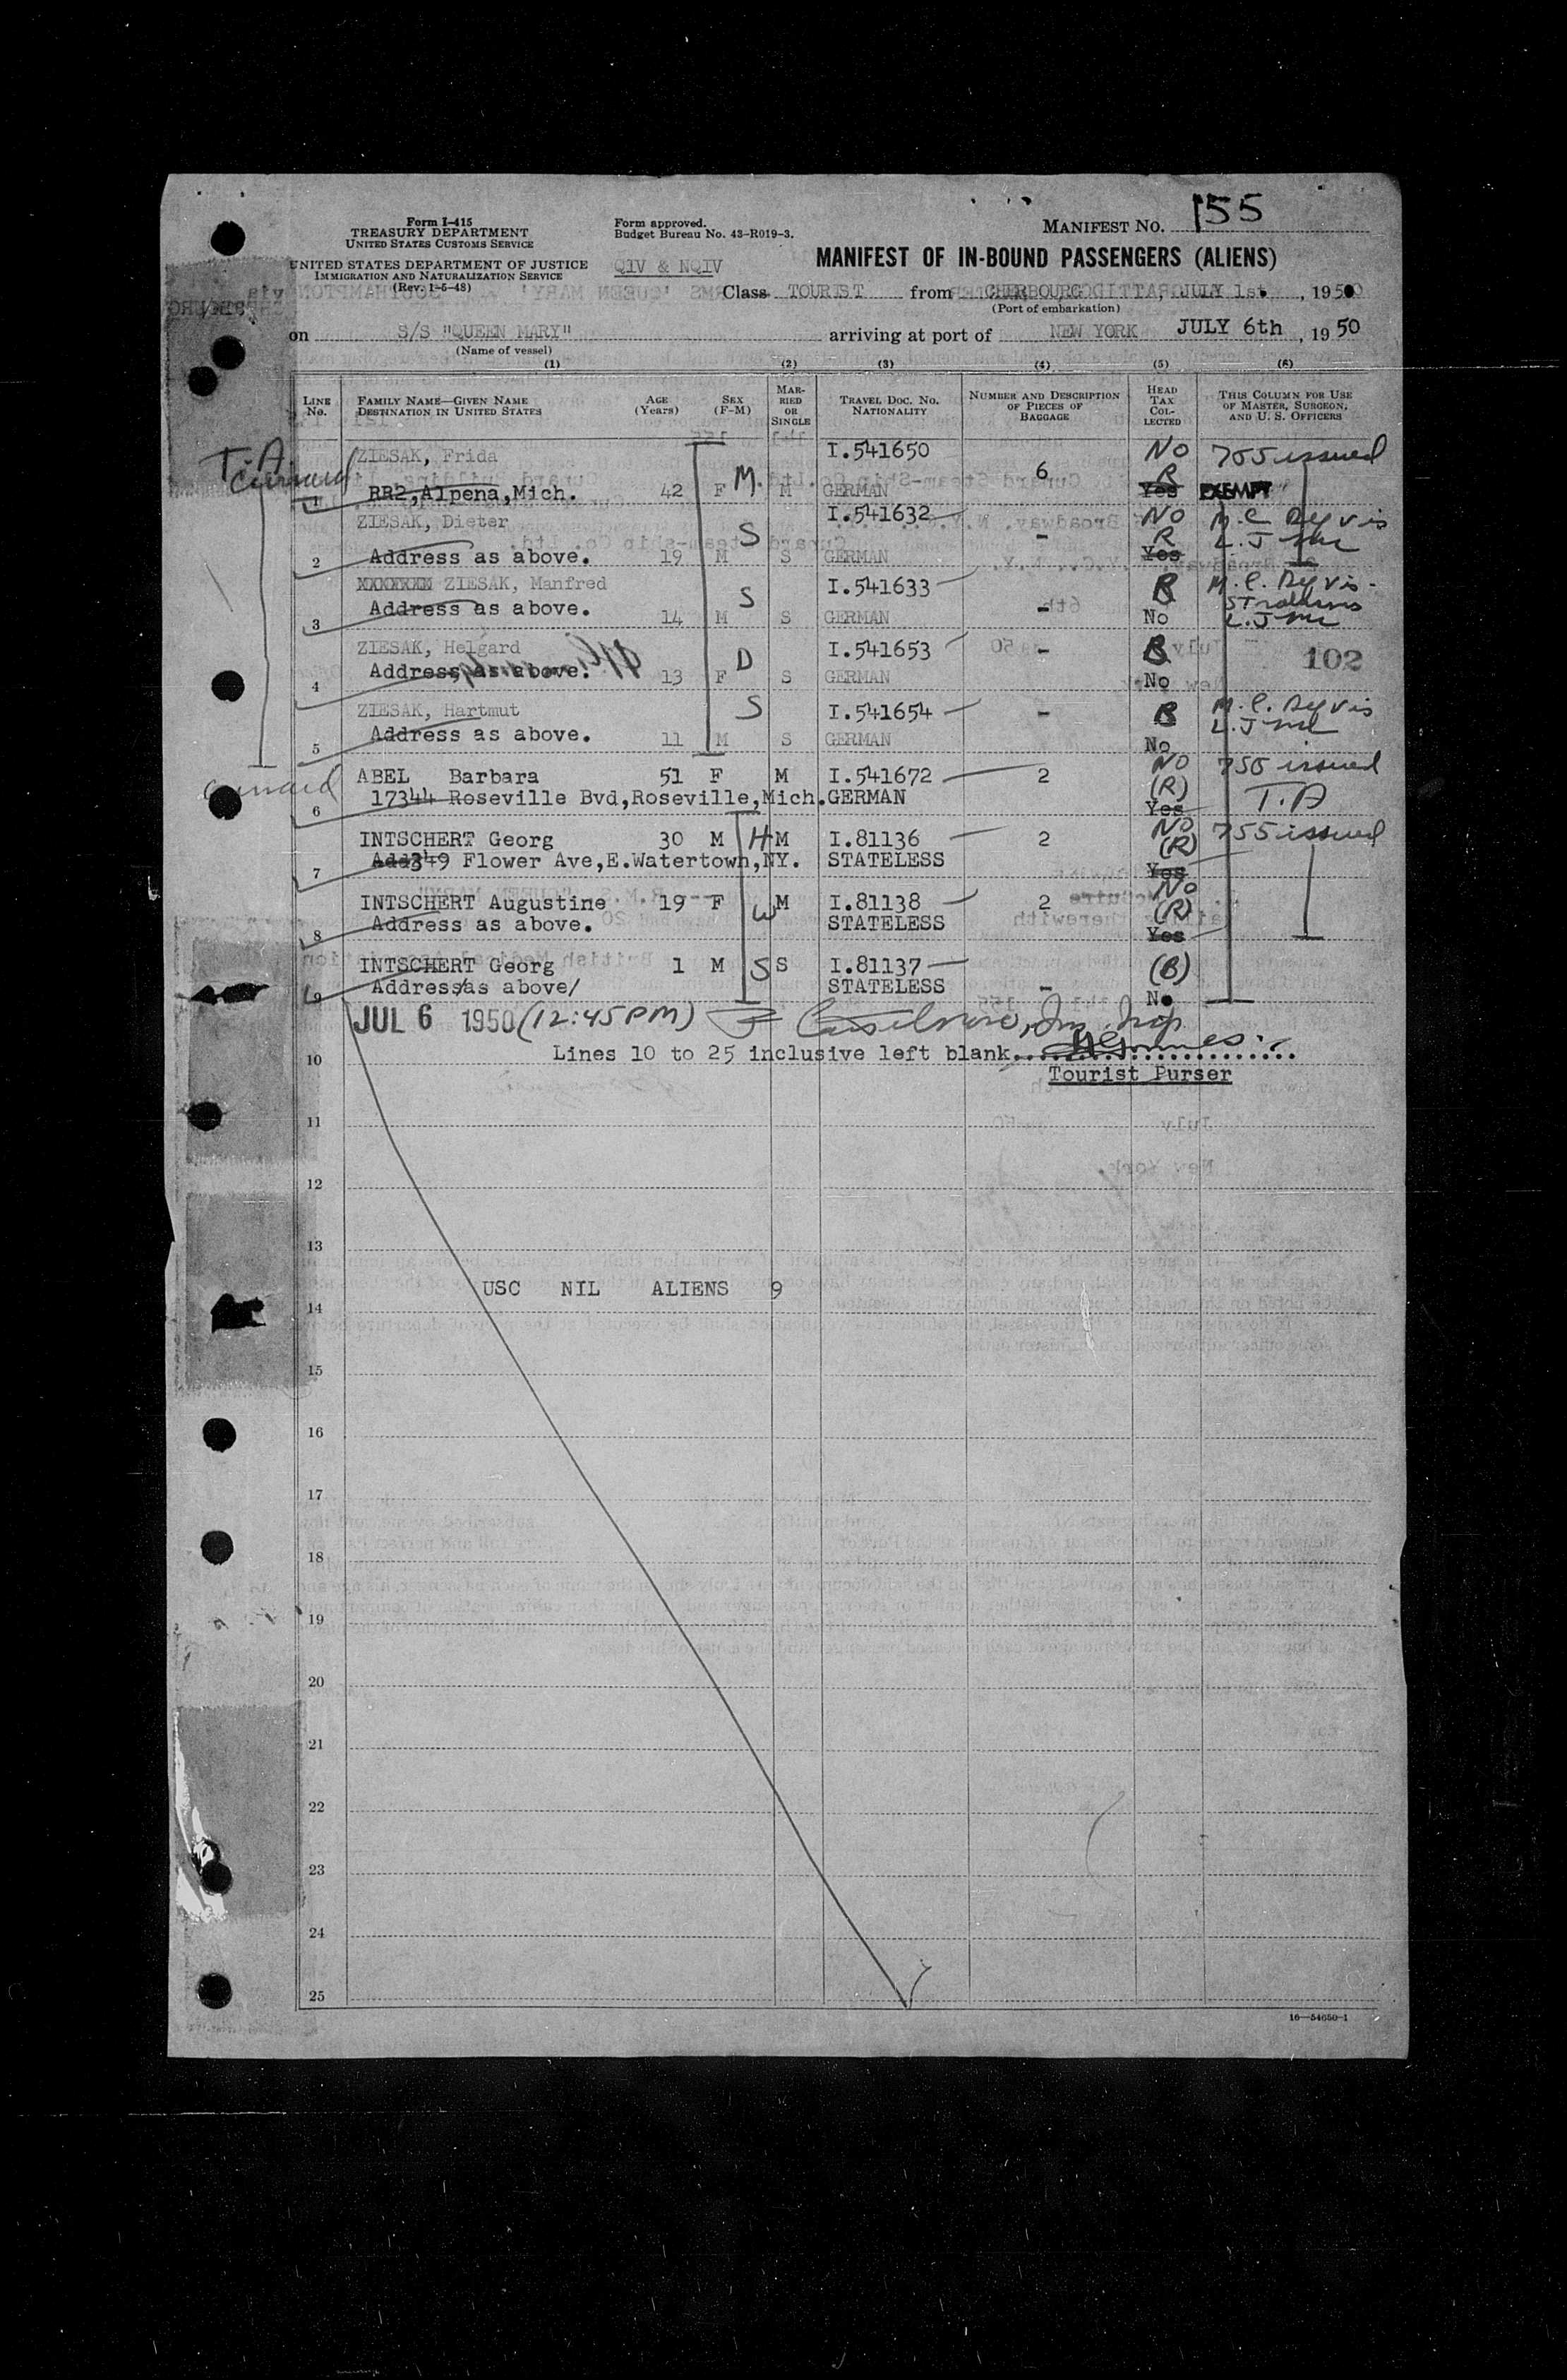 Form I-415
TREASURY DEPARTMENT
UNITED STATES CUSTOMS SERVICE
UNITED STATES DEPARTMENT OF JUSTICE
IMMIGRATION AND NATURALIZATION SERVICE
(Rev. 1-5-48)
Form approved.
Budget Bureau No. 43-R019-3.
QIV & NQIV
MANIFEST NO. 155
MANIFEST OF IN-BOUND PASSENGERS (ALIENS)
Class TOURIST from CHERBOURG, JULY 1st, 1950
(Port of embarkation)
on S/S "QUEEN MARY" arriving at port of NEW YORK JULY 6th, 1950
(Name of vessel)
(1) (2) (3) (4) (5) (6)
LINE No. FAMILY NAME—GIVEN NAME DESTINATION IN UNITED STATES AGE (Years) SEX (F-M) MARRIED OR SINGLE TRAVEL DOC. NO. NATIONALITY NUMBER AND DESCRIPTION OF PIECES OF BAGGAGE HEAD TAX COLLECTED THIS COLUMN FOR USE OF MASTER, SURGEON, AND U. S. OFFICERS
T.A
Cunard
ZIESAK, Frida I.541650 6 NO 755 issued
1 RR2, Alpena, Mich. 42 F M. M GERMAN R Yes EXEMPT
ZIESAK, Dieter S I.541632 - NO
2 Address as above. 19 M S GERMAN R Yes
XXXXXXX ZIESAK, Manfred S I.541633 - B
3 Address as above. 14 M S GERMAN No
ZIESAK, Helgard D I.541653 - B 102
4 Address as above. 13 F S GERMAN No
ZIESAK, Hartmut S I.541654 - B
5 Address as above. 11 M S GERMAN No
Cunard ABEL Barbara 51 F M I.541672 2 NO 755 issued
6 17344 Roseville Bvd, Roseville, Mich. GERMAN (R) Yes T.A
INTSCHERT Georg 30 M H M I.81136 2 NO 755 issued
7 349 Flower Ave, E.Watertown, NY. STATELESS (R) Yes
INTSCHERT Augustine 19 F W M I.81138 2 No
8 Address as above. STATELESS (R) Yes
INTSCHERT Georg 1 M S S I.81137 - (B)
9 Address/as above/ STATELESS No
JUL 6 1950 (12:45PM)
10 Lines 10 to 25 inclusive left blank
Tourist Purser
11
12
13
USC NIL ALIENS 9
14
15
16
17
18
19
20
21
22
23
24
25
16—54650-1